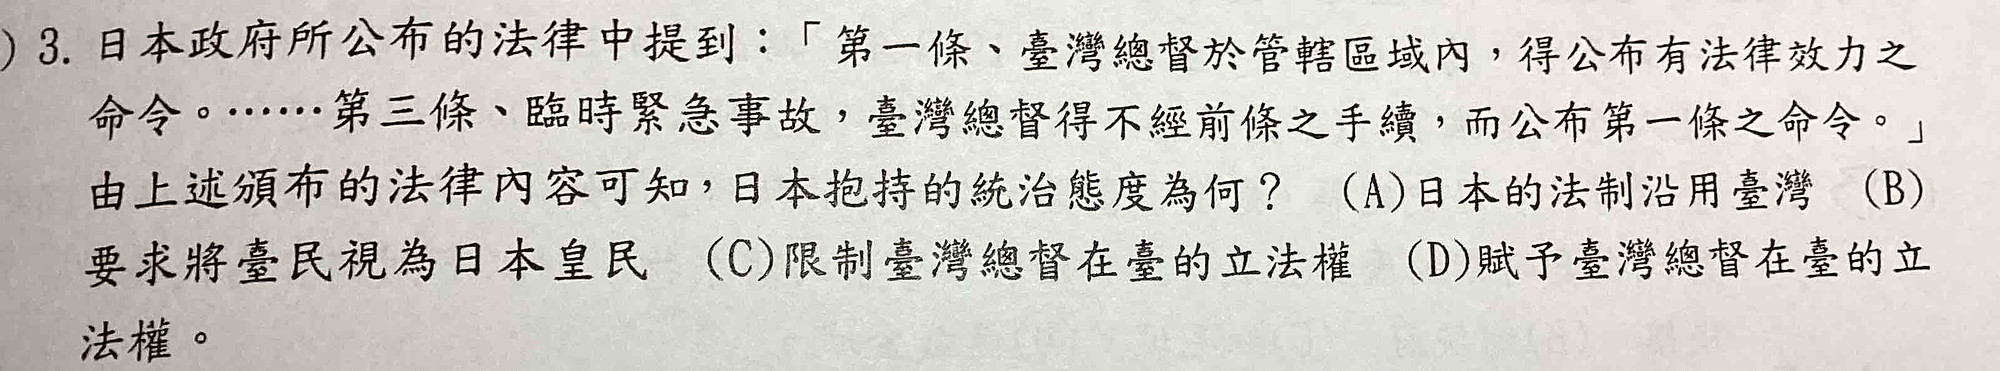 ) 3. 日本政府所公布的法律中提到：「第一條、臺灣總督於管轄區域內，得公布有法律效力之
命令。……第三條、臨時緊急事故，臺灣總督得不經前條之手續，而公布第一條之命令。」
由上述頒布的法律內容可知，日本抱持的統治態度為何？ (A)日本的法制沿用臺灣 (B)
要求將臺民視為日本皇民 (C)限制臺灣總督在臺的立法權 (D)賦予臺灣總督在臺的立
法權。